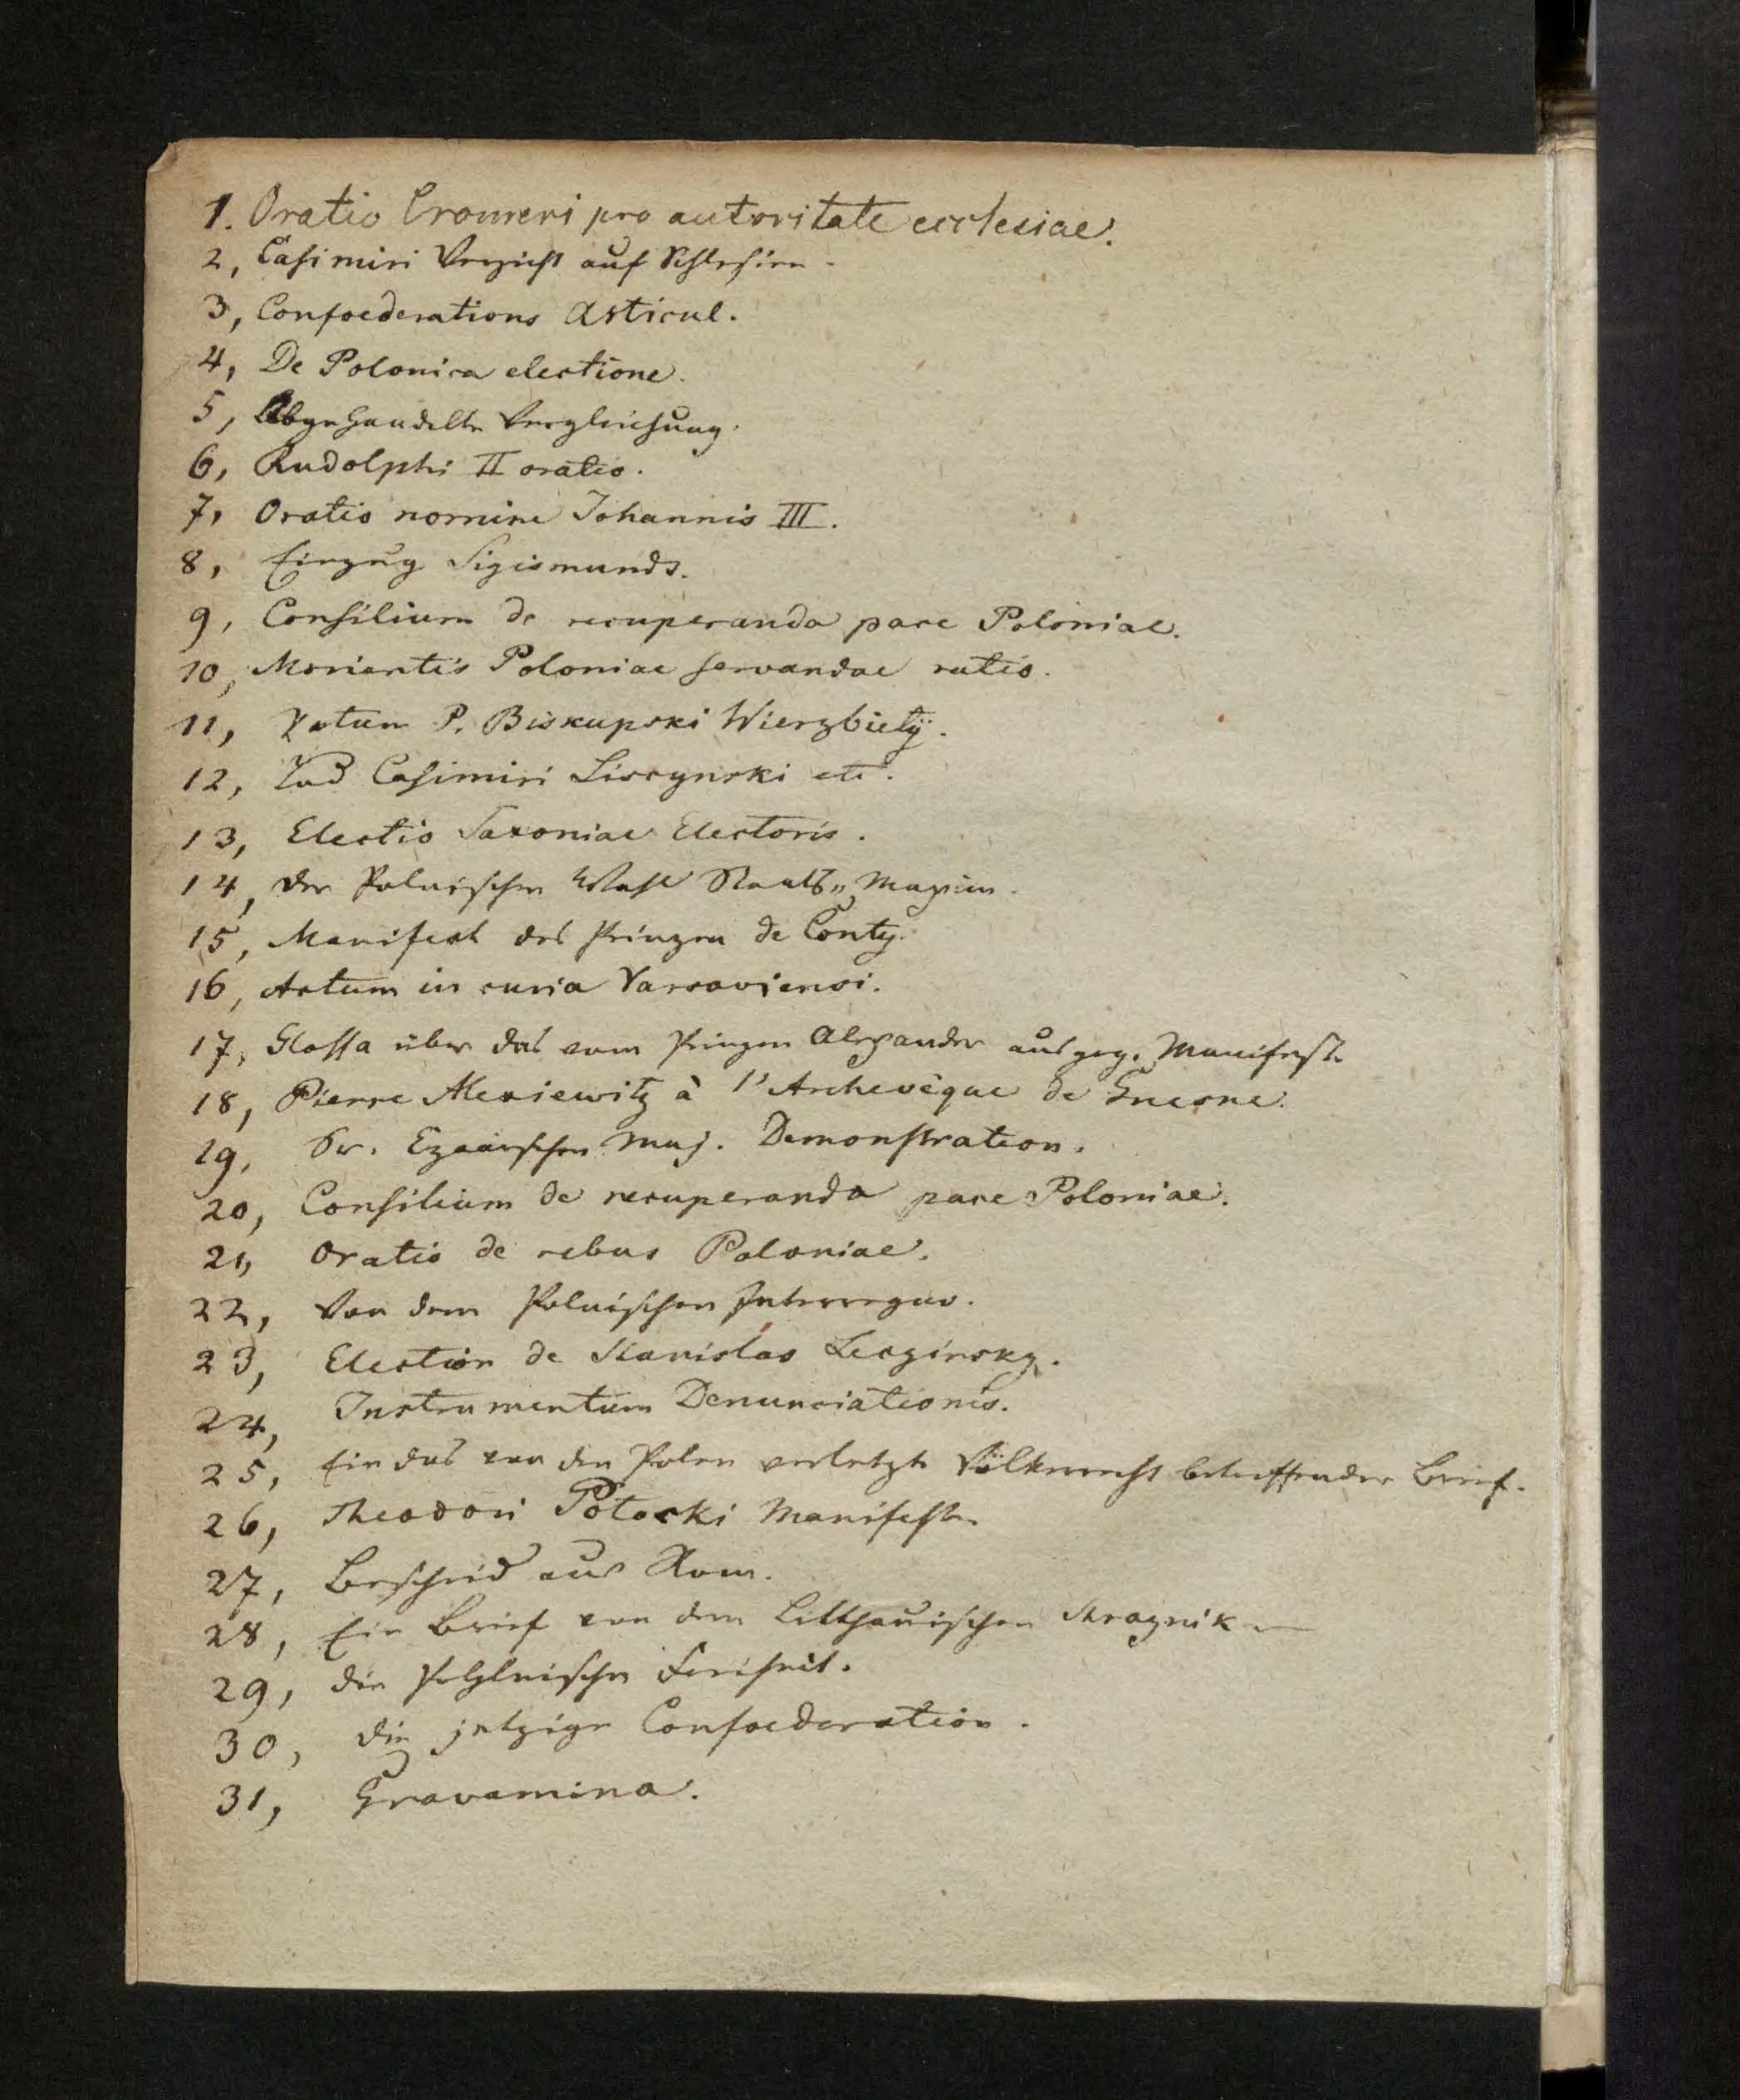 1. Oratio Cromeri pro autoritate ecclesiae.
2, Casimiri Verzicht auf Schlesien.
3, Confoederations Articul.
4, De Polonica electione.
5, Abgehandelte Vergleichung.
6, Rudolphi II oratio.
7, Oratio nomine Johannis III.
8, Einzug Sigismunds.
9, Consilium de recuperanda pace Poloniae.
10, Morientis Poloniae servandae ratio.
11, Votum P. Biskupski Wierzbiety.
12, Tod Casimiri Liscynski etc.
13, Electio Saxoniae Electoris.
14, der Polnischen Wahl Staats„Maxim.
15, Manifest des Prinzen de Conty.
16, Actum in curia Varsaviensi.
17, Glossa über das vom Prinzen Alexander ausgeg. Manifest.
18, Pierre Alexiewitz à l'Archevêque de Gnesne.
19, Sr. Czaarischen Maj. Demonstration.
20, Consilium de recuperanda pace Poloniae.
21, Oratio de rebus Poloniae.
22, Von dem Polnischen Interregno.
23, Election de Stanislas Leszinsky.
24, Instrumentum Denunciationis.
25, Ein das von den Polen verletzte Völkerrecht betreffender Brief.
26, Theodori Potocki Manifest.
27, Bescheid aus Rom.
28, Ein Brief von dem Litthauischen Straznik
29, die Pohlnische Freiheit.
30, die jetzige Confoederation.
31, Gravamina.